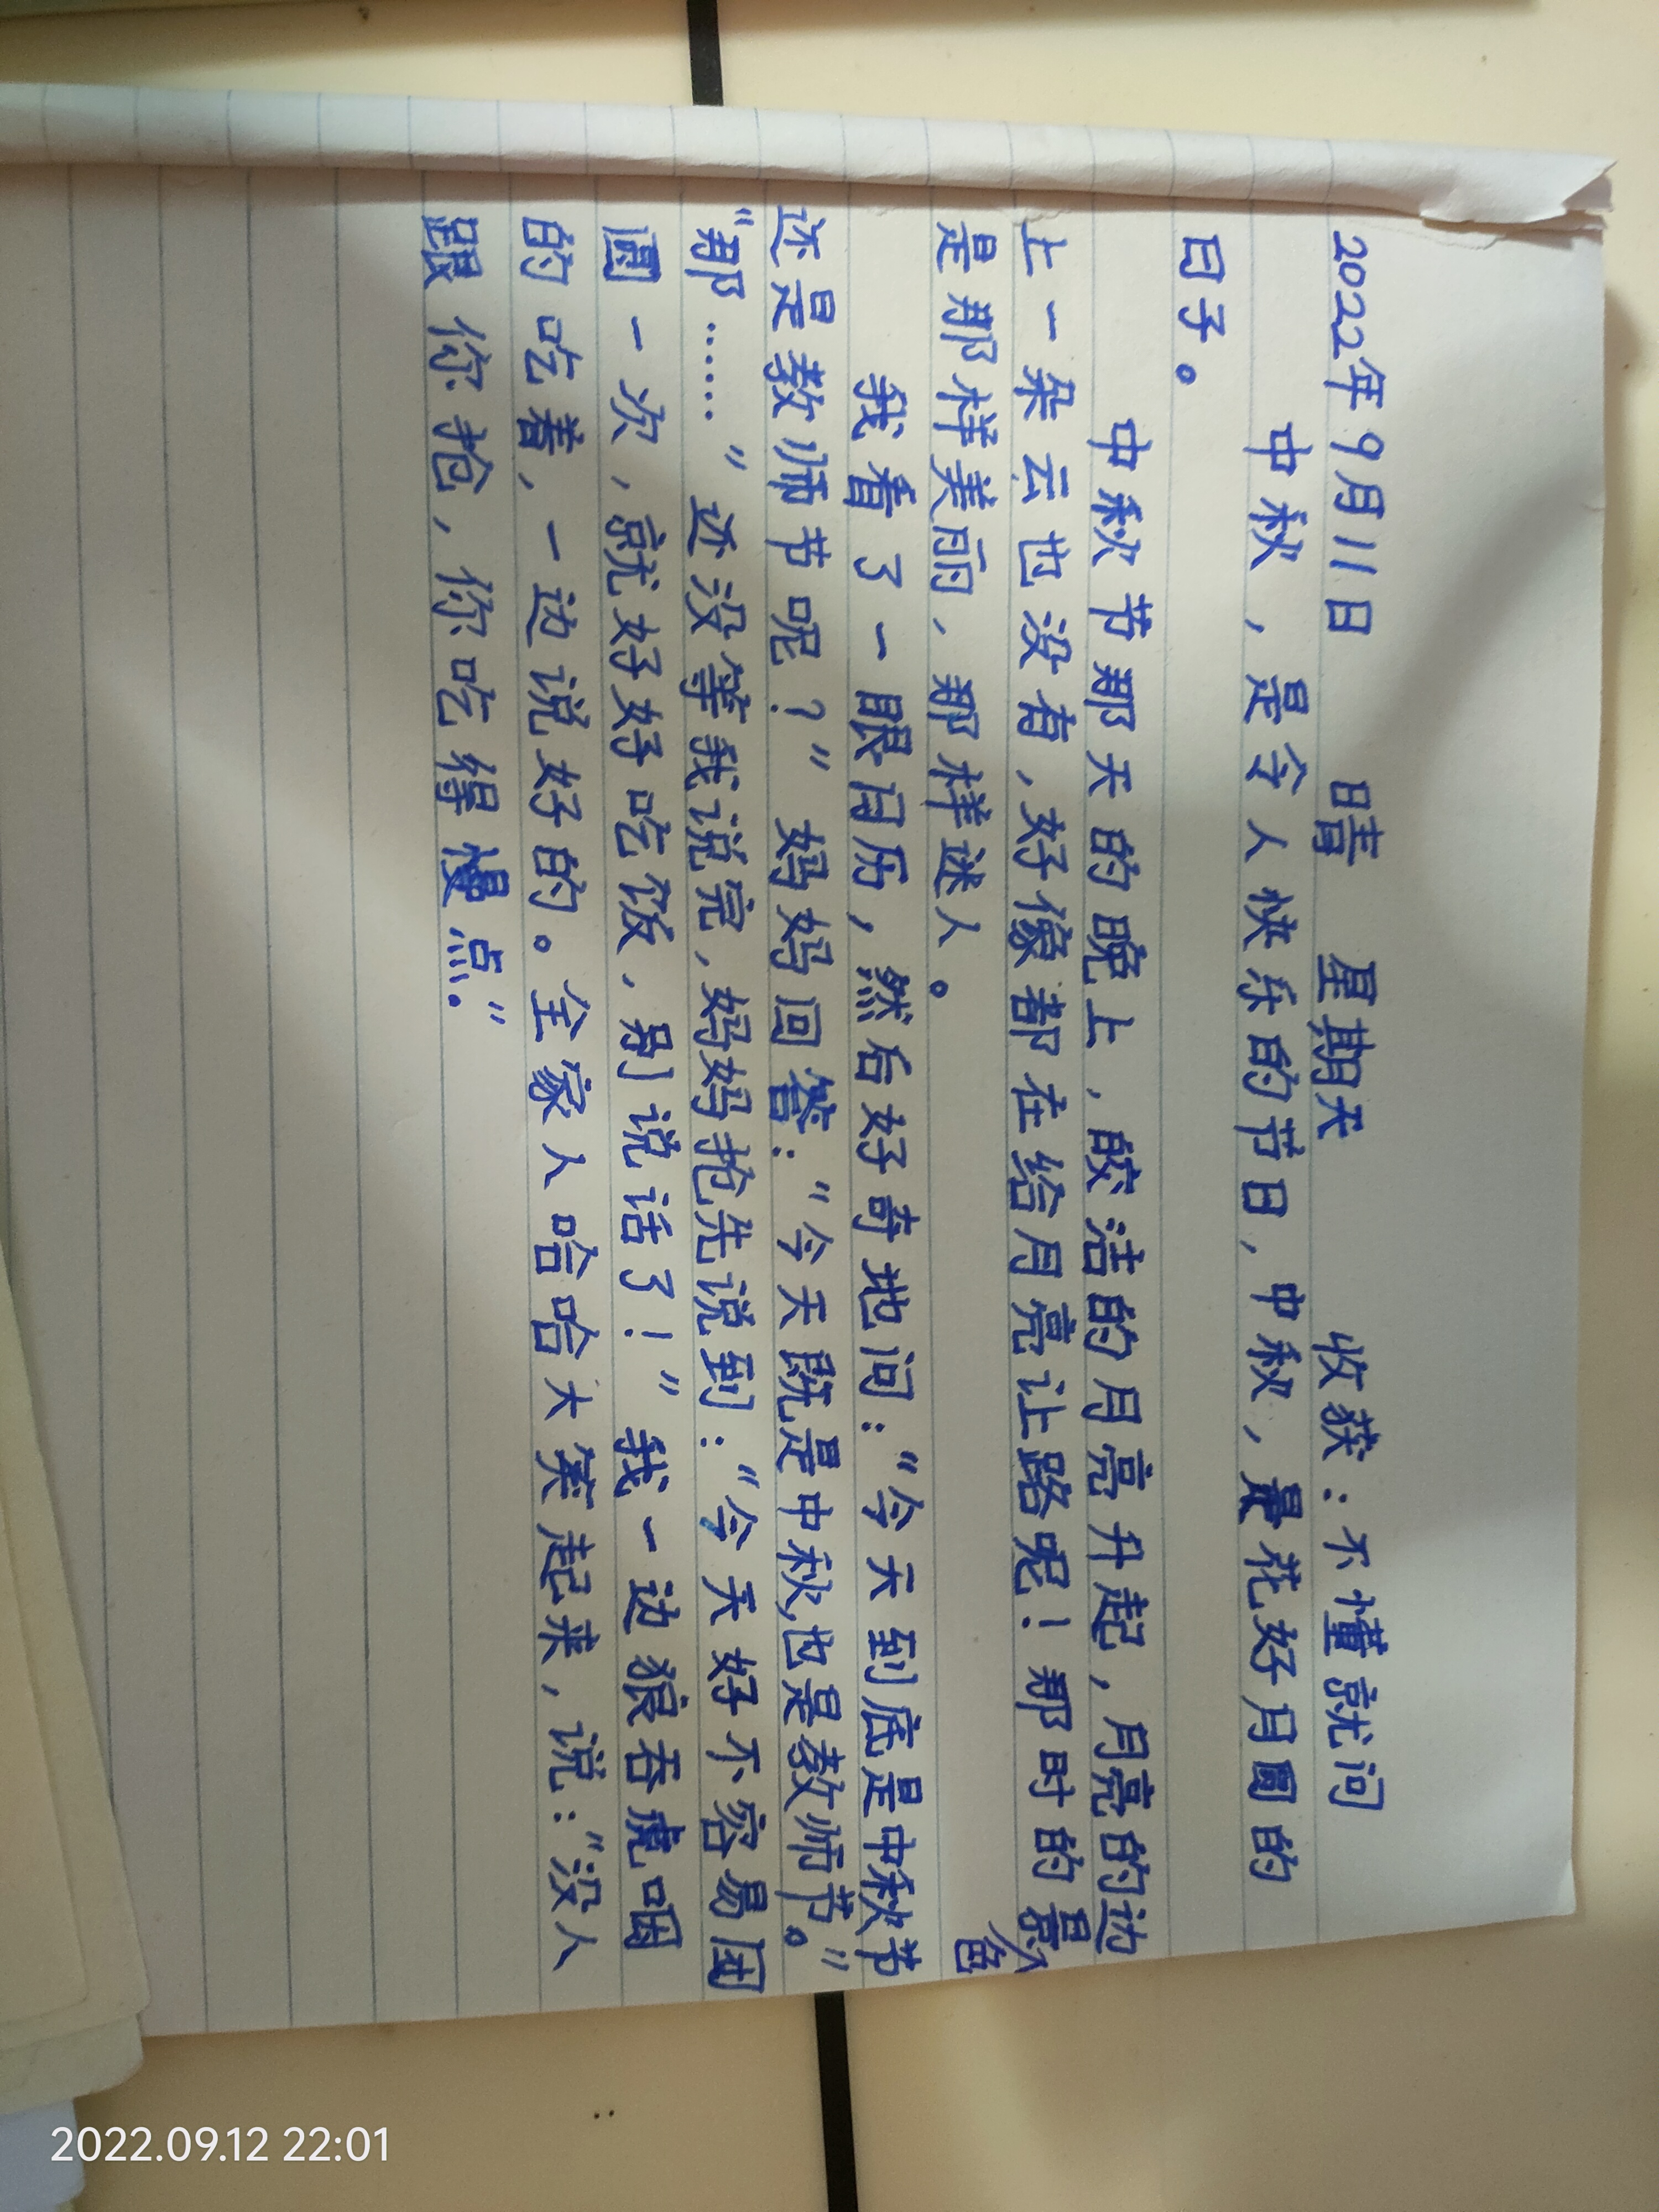 2022年9月11日 晴 星期天 收获：不懂就问
中秋，是令人快乐的节日，中秋，最花好月圆的
日子。
中秋节那天的晚上，皎洁的月亮升起，月亮的边
上一朵云也没有，好像都在给月亮让路呢！那时的景色
是那样美丽，那样迷人。
我看了一眼日历，然后好奇地问：“今天到底是中秋节
还是教师节呢？”妈妈回答：“今天既是中秋，也是教师节。”
“那……”还没等我说完，妈妈抢先说到：“今天好不容易团
圆一次，就好好吃饭，别说话了！”我一边狼吞虎咽
的吃着，一边说好的。全家人哈哈大笑起来，说：“没人
跟你抢，你吃得慢点。”
2022.09.12 22:01